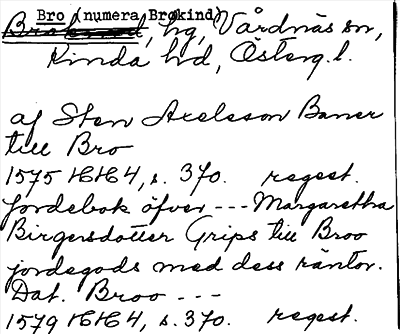 Bro (numera Brokind)
hg, Vårdnäs sn,
Kinda hd, Österg. l.
af Sten Axelsson Baner
till Bro
1575 16/6 4, s. 370. regest.
Jordebok öfver --- Margarettha
Birgersdotter Grips till Broo
jordegods med dess räntor.
Dat. Broo ---
1579 16/6 4, s. 370. regest.